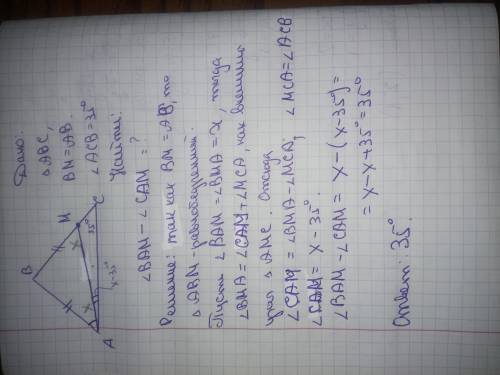 Дано:
△ABC,
BM=AB.
∠ACB=35°
Найти:
∠BAM-∠CAM=?
B
M
C
A
x
x
35°
x-35°
Решение: так как BM=AB, то
△ABM-равнобедренный.
Пусть ∠BAM=∠BMA=x, тогда
∠BMA=∠CAM+∠MCA, как внешний
угол △AMC. Отсюда
∠CAM=∠BMA-∠MCA; ∠MCA=∠ACB
∠CAM=x-35°.
∠BAM-∠CAM=x-(x-35°)=
=x-x+35°=35°
Ответ: 35°.